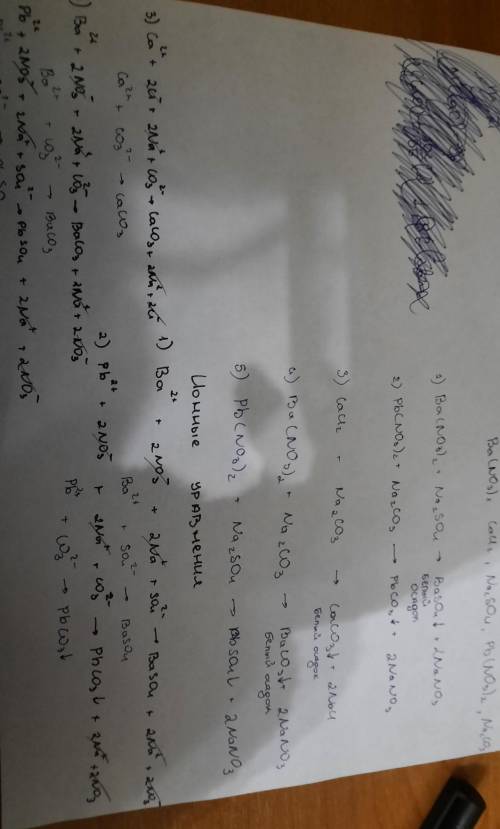 Ba(NO3)2, CaCl2, Na2SO4, Pb(NO3)2, Na2CO3
1) Ba(NO3)2 + Na2SO4 → BaSO4↓ + 2NaNO3
белый
осадок
2) Pb(NO3)2 + Na2CO3 → PbCO3↓ + 2NaNO3
3) CaCl2 + Na2CO3 → CaCO3↓ + 2NaCl
белый осадок
4) Ba(NO3)2 + Na2CO3 → BaCO3↓ + 2NaNO3
белый осадок
5) Pb(NO3)2 + Na2SO4 → PbSO4↓ + 2NaNO3
Ионные уравнения
1) Ba²⁺ + 2NO3⁻ + 2Na⁺ + SO4²⁻ → BaSO4 + 2Na⁺ + 2NO3⁻
Ba²⁺ + SO4²⁻ → BaSO4
2) Pb²⁺ + 2NO3⁻ + 2Na⁺ + CO3²⁻ → PbCO3↓ + 2Na⁺ + 2NO3⁻
Pb²⁺ + CO3²⁻ → PbCO3↓
3) Ca²⁺ + 2Cl⁻ + 2Na⁺ + CO3²⁻ → CaCO3 + 2Na⁺ + 2Cl⁻
Ca²⁺ + CO3²⁻ → CaCO3
) Ba²⁺ + 2NO3⁻ + 2Na⁺ + CO3²⁻ → BaCO3 + 2Na⁺ + 2NO3⁻
Ba²⁺ + CO3²⁻ → BaCO3
Pb²⁺ + 2NO3⁻ + 2Na⁺ + SO4²⁻ → PbSO4 + 2Na⁺ + 2NO3⁻